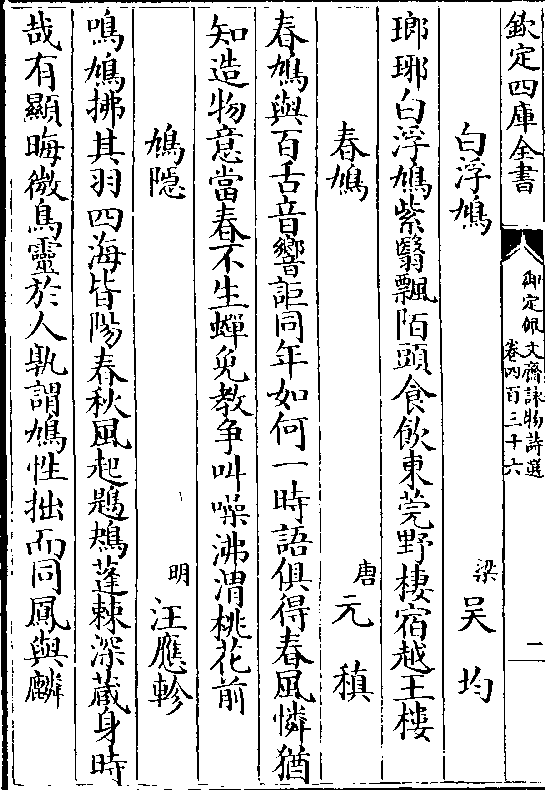 欽定四庫全書
御定佩文齋詠物詩選
卷四百三十六
二
白浮鳩
梁
吴均
瑯琊白浮鳩紫翳飄陌頭食飲東莞野棲宿越王樓
春鳩
唐
元稹
春鳩與百舌音響詎同年如何一時語俱得春風憐猶
知造物意當春不生蟬免教争叫噪沸渭桃花前
鳩隠
明
汪應軫
鳴鳩拂其羽四海皆陽春秋風起鶗鴂蓬棘深蔵身時
哉有顯晦微鳥靈於人孰謂鳩性拙而同鳳與麟